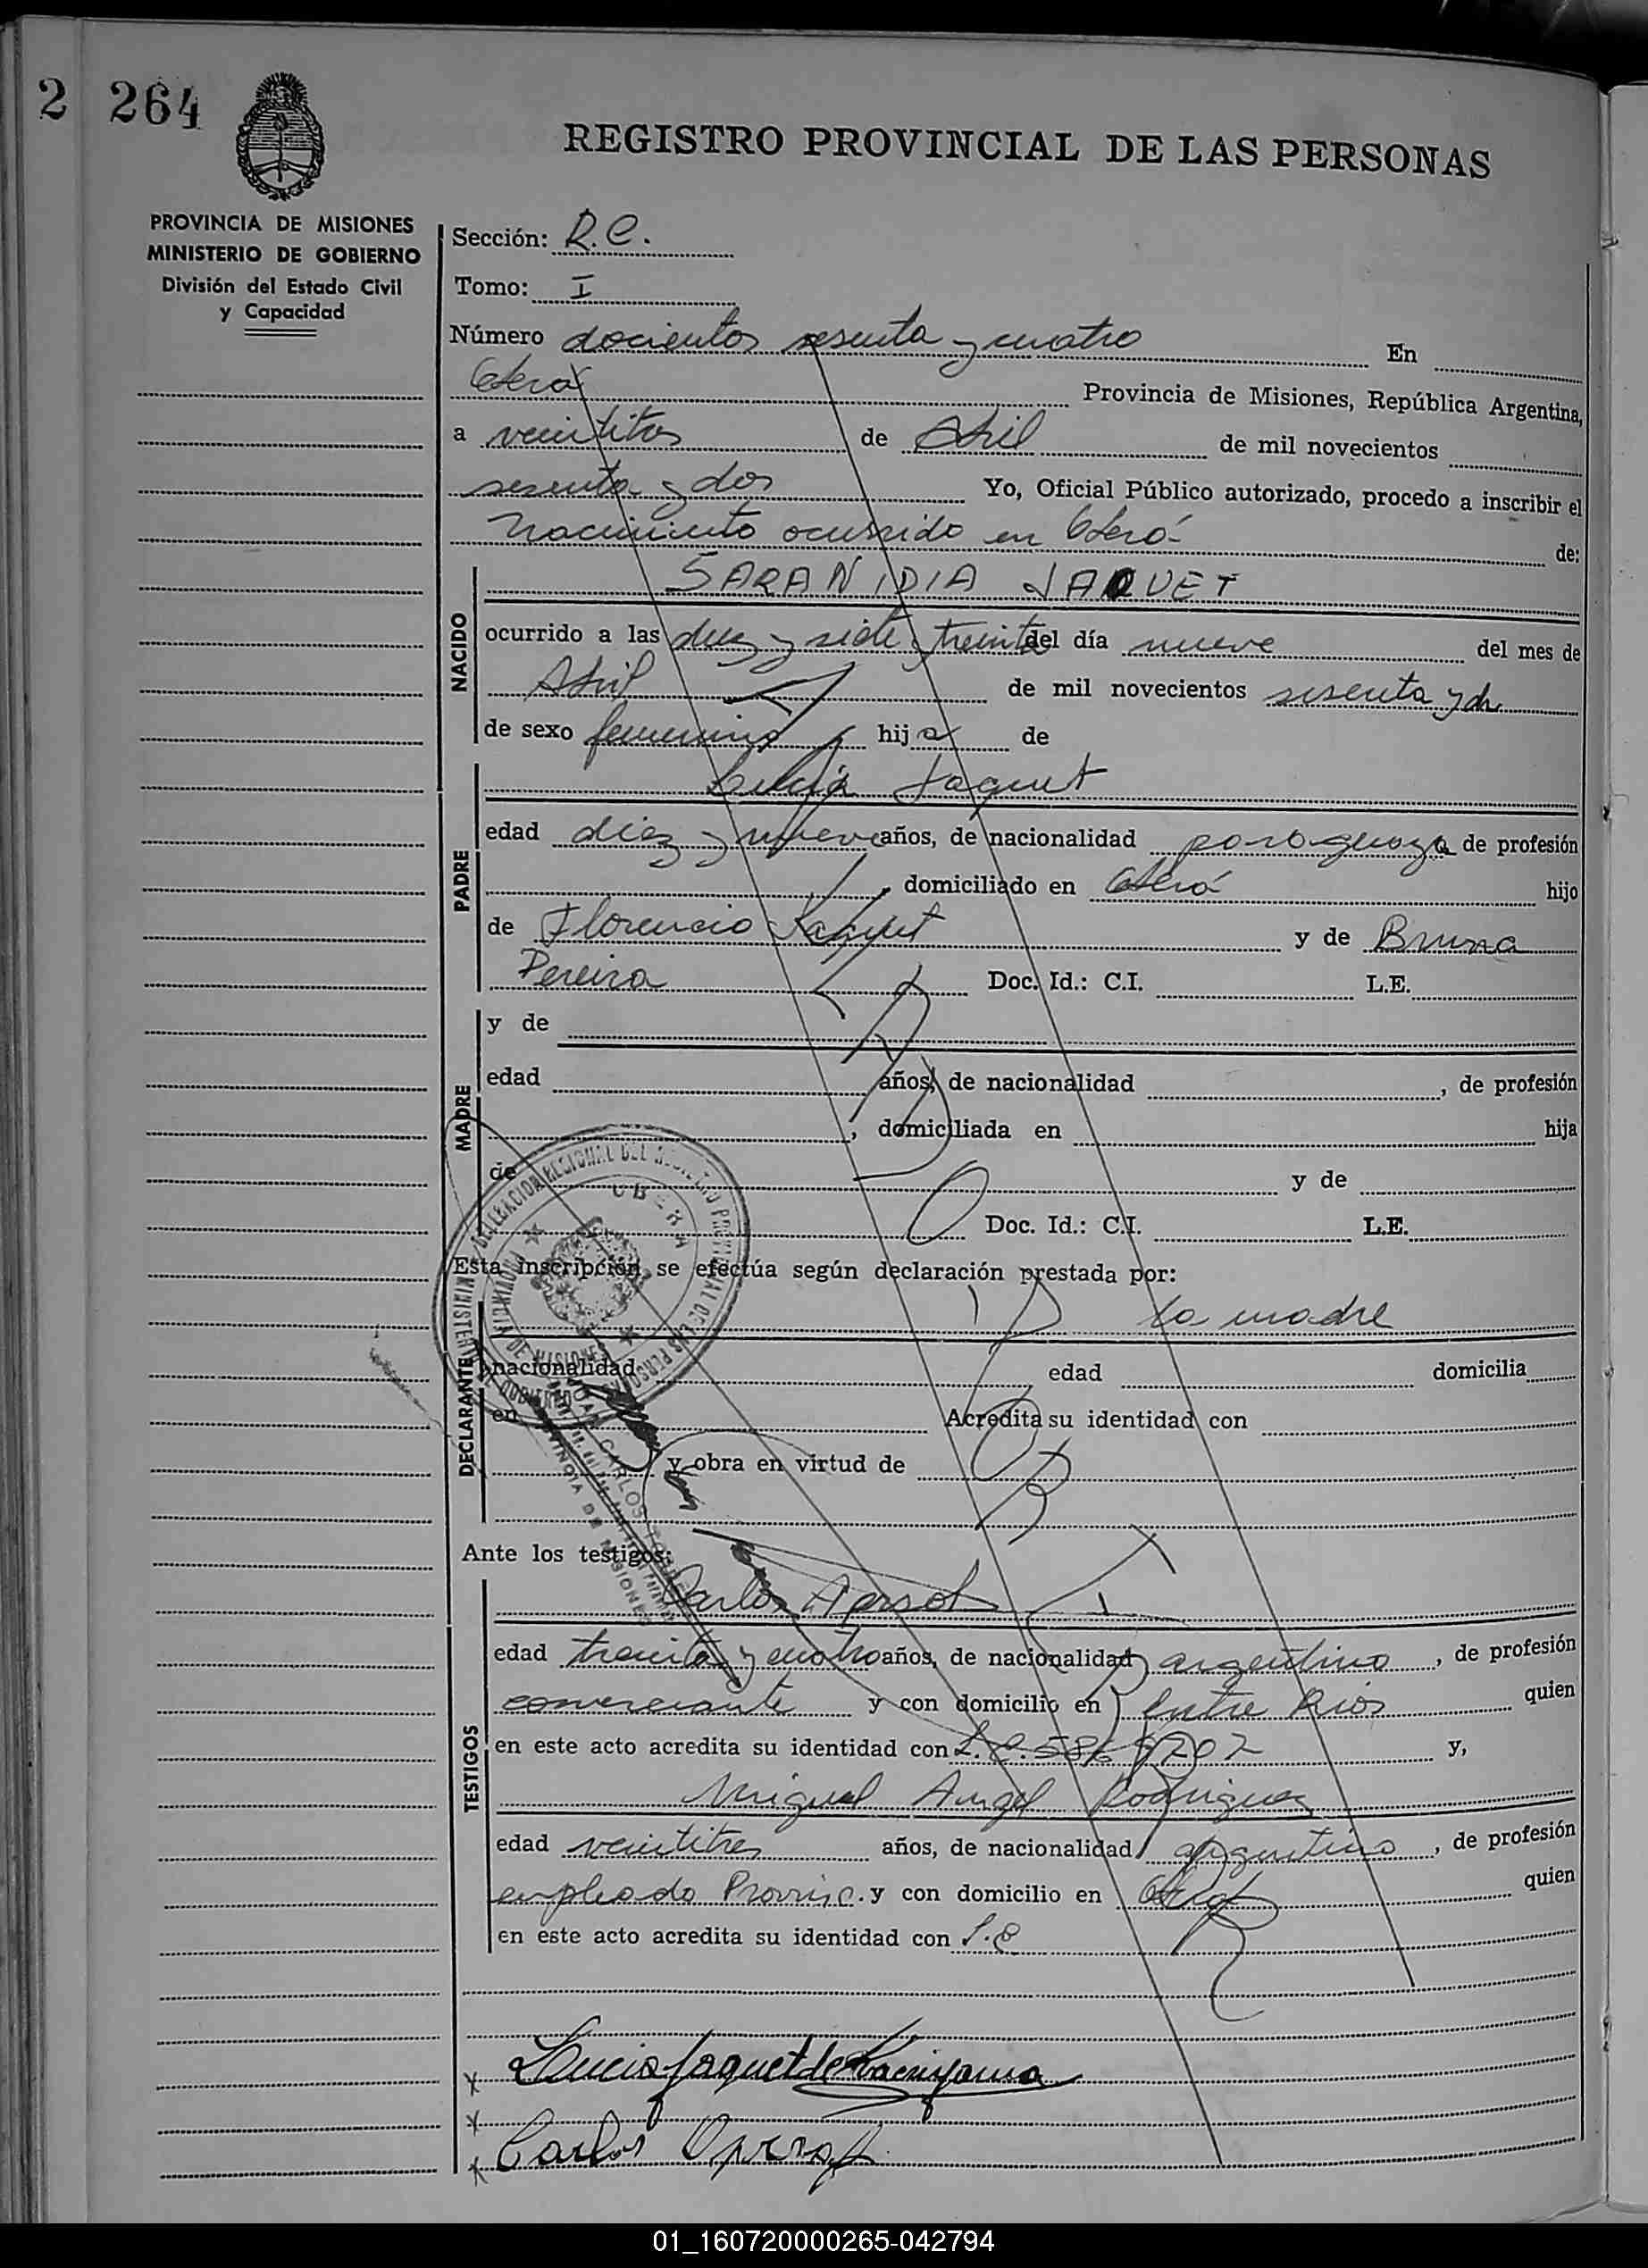 2 264
REGISTRO PROVINCIAL DE LAS PERSONAS
PROVINCIA DE MISIONES
MINISTERIO DE GOBIERNO
División del Estado Civil
y Capacidad
Sección: R.C.
Tomo: I
Número docientos sesenta y cuatro En
Oberá Provincia de Misiones, República Argentina,
a de Abril de mil novecientos
sesenta y dos Yo, Oficial Público autorizado, procedo a inscribir el
Nacimiento ocurrido en Oberá de:
SARA NIDIA JAQUET
NACIDO
ocurrido a las diez y siete y treinta del día nueve del mes de
Abril de mil novecientos sesenta y dos
de sexo femenino hija de
Lucia Jaquet
PADRE
edad diez y nueve años, de nacionalidad paraguaya de profesión
domiciliado en Oberá hijo
de Florencio Jaquet y de Bruna
Pereira Doc. Id.: C.I. L.E.
MADRE
y de
edad años, de nacionalidad , de profesión
, domiciliada en hija
de y de
Doc. Id.: C.I. L.E.
Esta inscripción se efectúa según declaración prestada por:
la madre
DECLARANTE
nacionalidad edad domicilia
en Acredita su identidad con
y obra en virtud de
Ante los testigos:
Carlos
TESTIGOS
edad treinta y cuatro años, de nacionalidad argentino , de profesión
comerciante y con domicilio en Entre Rios quien
en este acto acredita su identidad con y,
Miguel Angel Rodriguez
edad veintitres años, de nacionalidad argentino , de profesión
empleado Provinc. y con domicilio en Oberá quien
en este acto acredita su identidad con
Lucia Jaquet de
Carlos
01_160720000265-042794